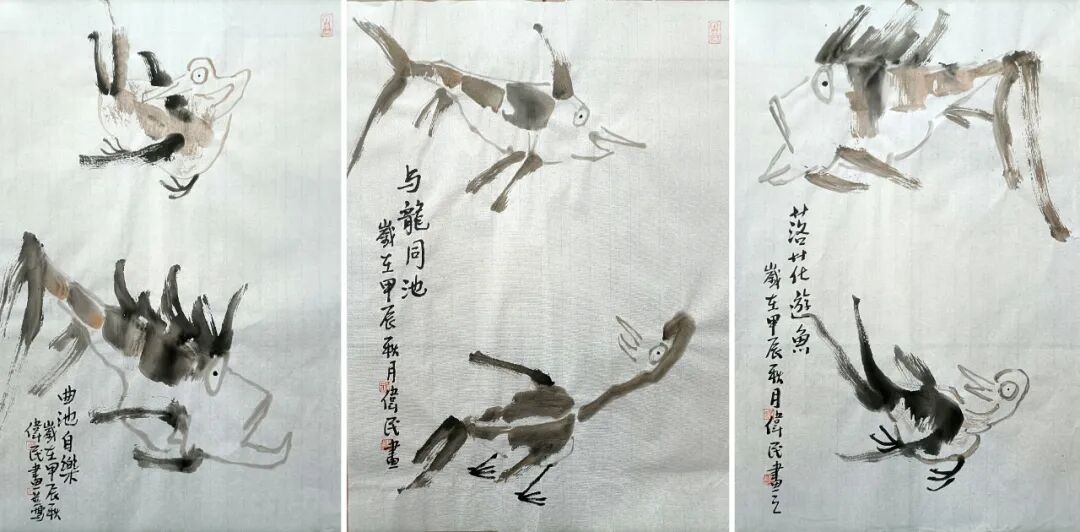 曲池自樂
歲在甲辰秋
偉民畫并寫
与龍同池
歲在甲辰秋月偉民畫
落花遊魚
歲在甲辰秋月偉民畫之